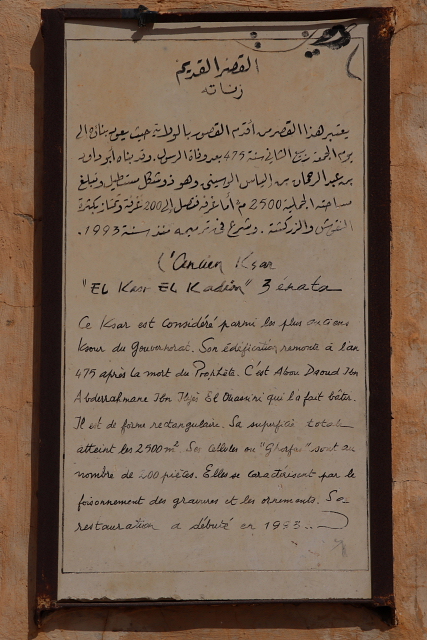 القصر القديم
زناته
يعتبر هذا القصر من أقدم القصور بالولاية حيث يعود بناؤه الى
يوم الجمعة ربيع الثاني سنة 475 بعد وفاة الرسول. وقد بناه أبو داود
بن عبد الرحمان بن إلياس الوسيني وهو ذو شكل مستطيل وتبلغ
مساحته الجملية 2500 م أما غرفه فتصل إلى 200 غرفة وتمتاز بكثرة
النقوش والزركشة. وشرع في ترميمه منذ سنة 1993.
L'Ancien Ksar
"EL Kasr EL Kadim" Zénata
Ce Ksar est considéré parmi les plus anciens
Ksour du Gouvernorat. Son édification remonte à l'an
475 après la mort du Prophète. C'est Abou Daoud Ibn
Abderrahmane Ibn Iljès El Ouassini qui l'a fait bâtir.
Il est de forme rectangulaire. Sa superficie totale
atteint les 2500 m² Ses cellules ou "Ghorfas" sont au
nombre de 200 pièces. Elles se caractérisent par le
foisonnement des gravures et les ornements. Sa
restauration a débuté en 1993..